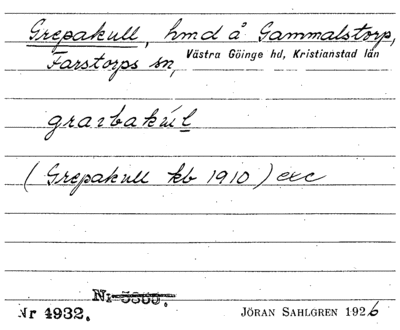 Grepakull, hmd å Gammalstorp,
Farstorps sn, Västra Göinge hd, Kristianstad län
gravbakúl
(Grepakull kb 1910) exc
Nr 5365.
Nr 4932.
JÖRAN SAHLGREN 1926